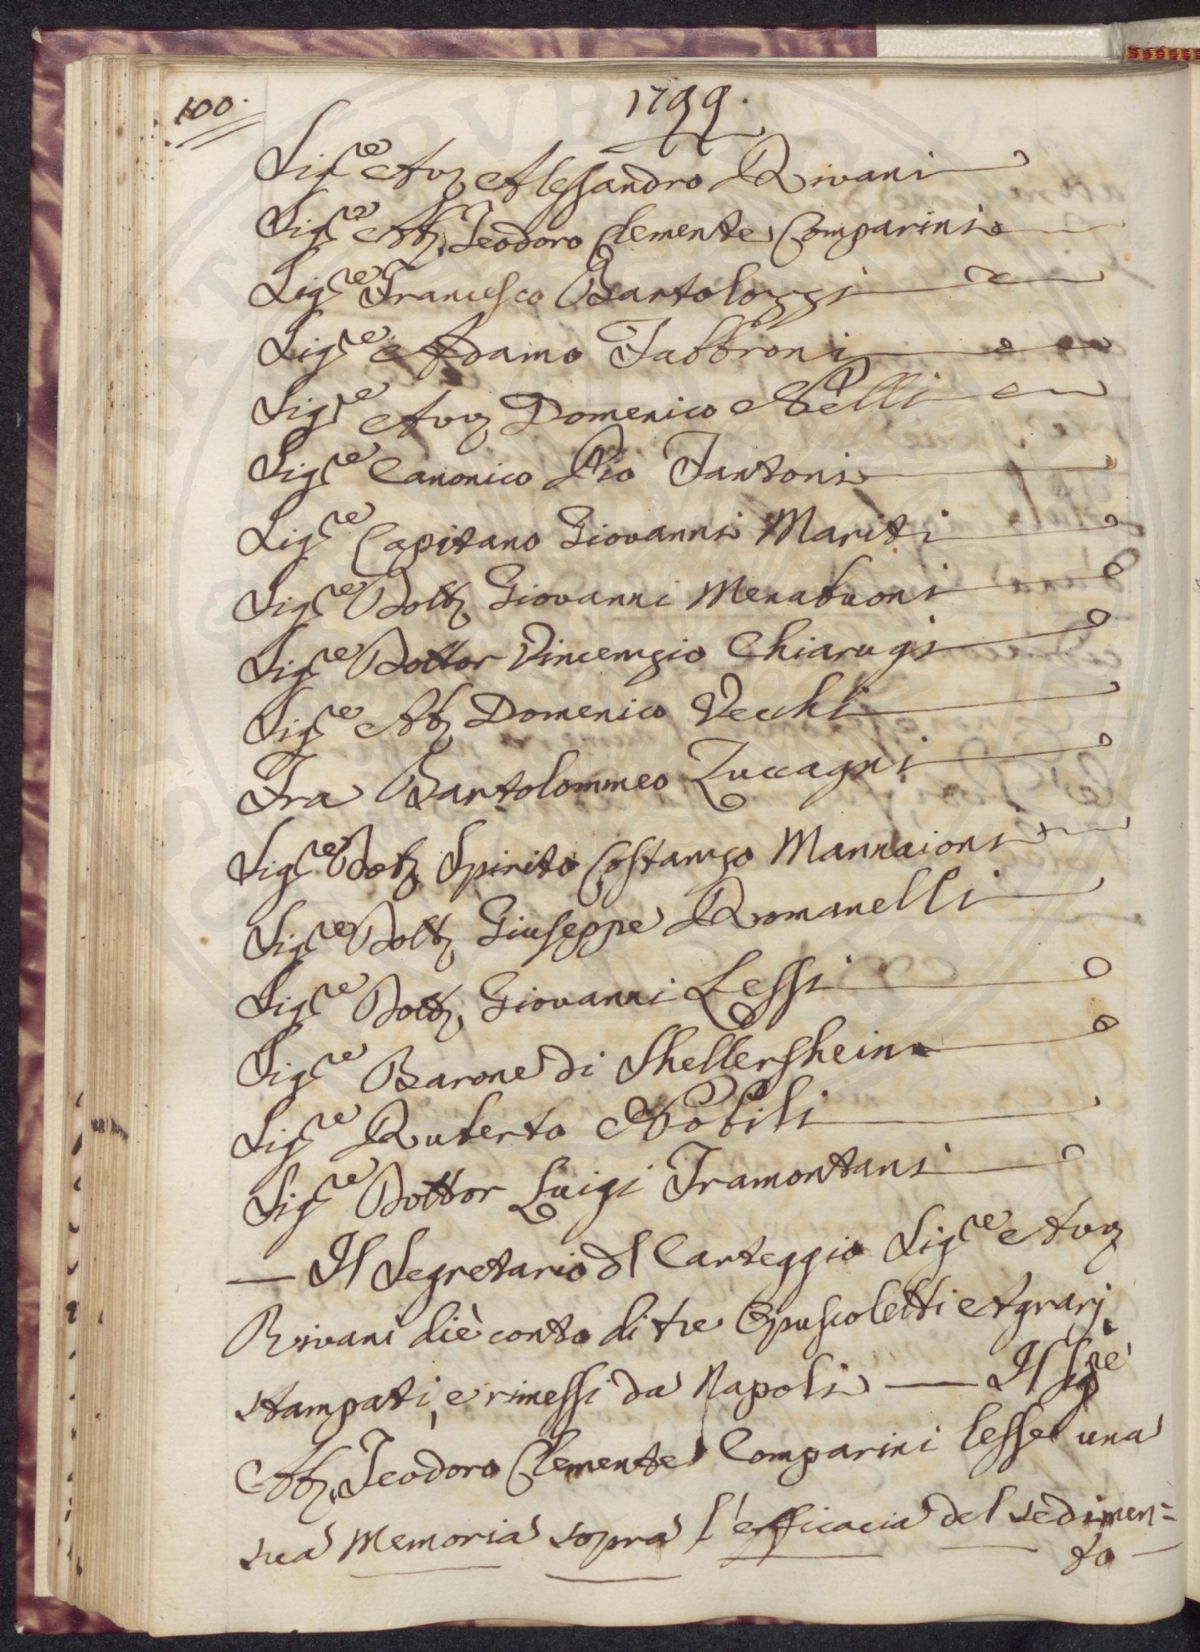 100.
1799.
Sig.re Avv. Alessandro Rivani
Sig.re Ab. Teodoro Clemente Comparini
Sig.re Francesco Bartolozzi
Sig.re Adamo Fabbroni
Sig.re Avv. Domenico Nelli
Sig.re Canonico Pio Fantoni
Sig.re Capitano Giovanni Mariti
Sig.re Dott. Giovanni Menabuoni
Sig.re Dottor Vincenzio Chiarugi
Sig.re Ab. Domenico Vecchi
Fra Bartolommeo Zuccagni
Sig.re Dott. Spirito Costanzo Mannaioni
Sig.re Dott. Giuseppe Romanelli
Sig.re Dott. Giovanni Lessi
Sig.re Barone di Shellersheim
Sig.re Ruberto Nobili
Sig.re Dottor Luigi Tramontani
— Il Segretario dl Carteggio Sig.re Avv.
Rivani diè conto di tre Opuscoletti Agrarj
stampati, e rimessi da Napoli — Il Sig.re
Ab. Teodoro Clemente Comparini lesse una
sua Memoria sopra l'efficacia del sedimen=
to